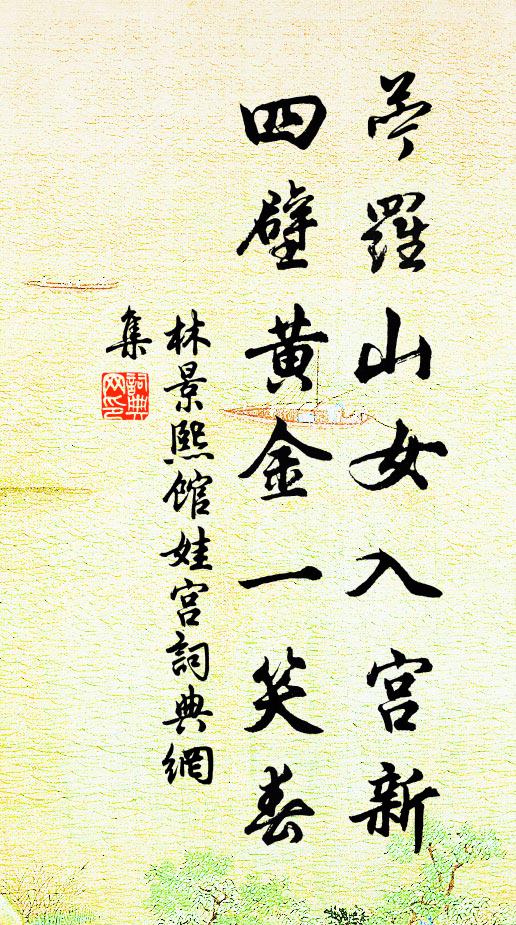 苎羅山女入宫新
四壁黄金一笑春
林景熙館娃宫詞典網
集
詞典网印